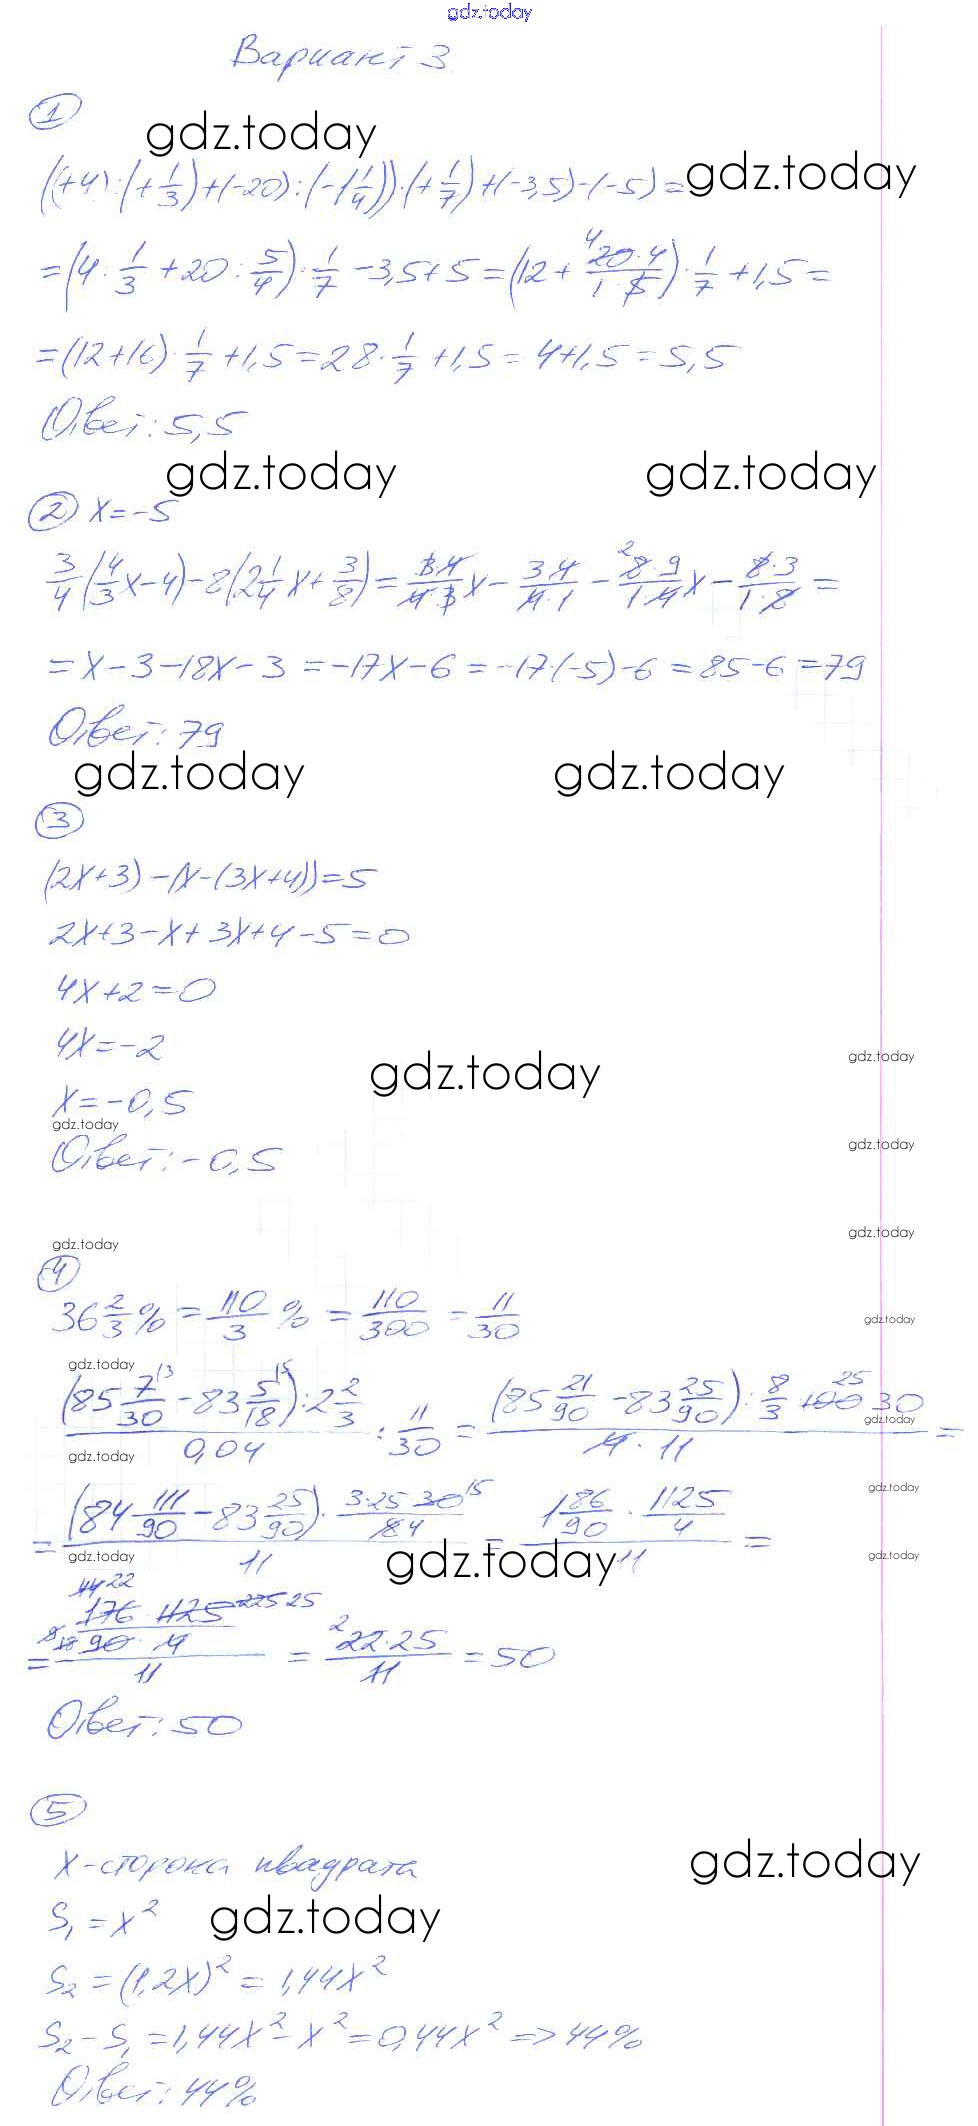 gdz.today
Вариант 3
1
gdz.today
((+4):(+1/3)+(-20):(-1 1/4))·(+1/7)+(-3,5)-(-5)= gdz.today
=(4·1/3+20:5/4)·1/7-3,5+5=(12+20·4/1·5)·1/7+1,5=
=(12+16)·1/7+1,5=28·1/7+1,5=4+1,5=5,5
Ответ: 5,5
gdz.today gdz.today
2 x=-5
3/4(4/3x-4)-8(2 1/4x+3/8)=3·4/4·3x-3·4/4·1-8·9/1·4x-8·3/1·8=
=x-3-18x-3=-17x-6=-17·(-5)-6=85-6=79
Ответ: 79
gdz.today gdz.today
3
(2x+3)-(x-(3x+4))=5
2x+3-x+3x+4-5=0
4x+2=0
4x=-2
gdz.today gdz.today
x=-0,5
gdz.today
Ответ: -0,5 gdz.today
gdz.today gdz.today
4
36 2/3%=110/3%=110/300=11/30 gdz.today
gdz.today
(85 7/30-83 5/18):2 2/3 / 0,04 : 11/30=(85 21/90-83 25/90):8/3·100·30 / 4·11=
gdz.today gdz.today
=(84 111/90-83 25/90)·3·25·30/8 4 / 11=1 86/90·1125/4 / 11= gdz.today
gdz.today gdz.today gdz.today
=176·1125/90·4 / 11=22·25/11=50
Ответ: 50
5
x-сторона квадрата gdz.today
S₁=x² gdz.today
S₂=(1,2x)²=1,44x²
S₂-S₁=1,44x²-x²=0,44x²=>44%
Ответ: 44%